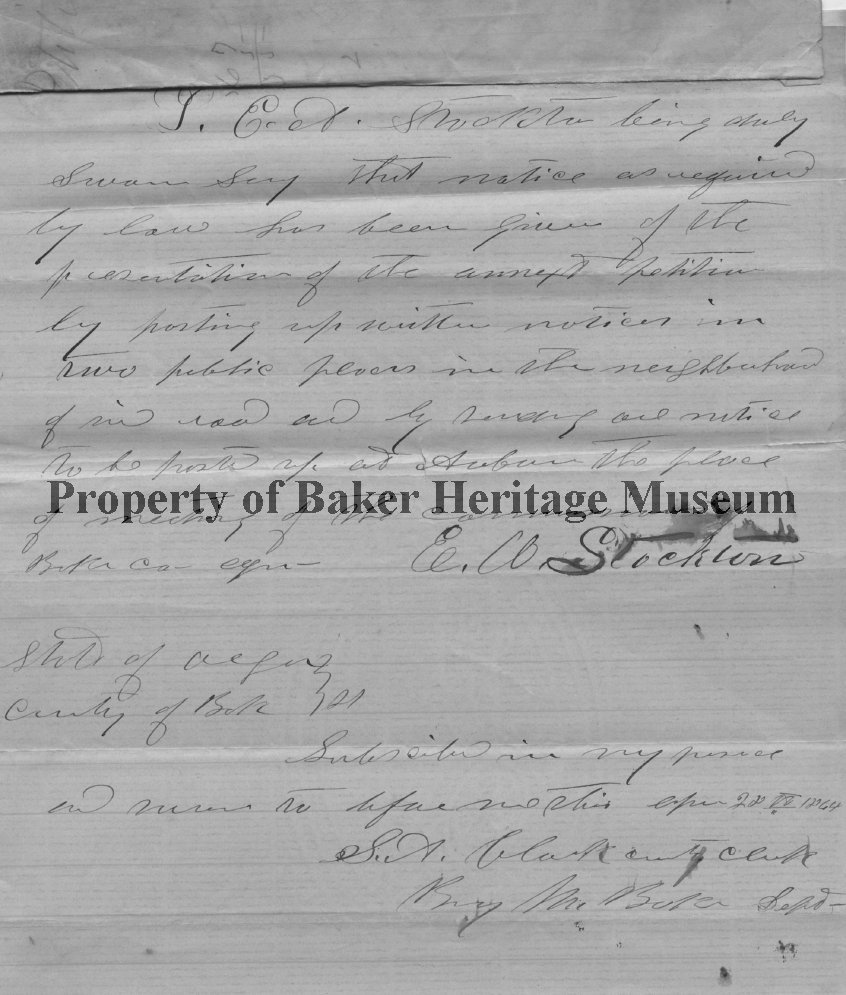 I. E. W. Stockton being duly
sworn say that notice as required
by law has been given of the
presentation of the annext petition
by posting up written notices in
two public places in the neighborhood
of road and by one notice
to be posted up at Auburn the place
Property of Baker Heritage Museum
of meeting of the
E. W. Stockton
Baker co
State of Oregon
County of Baker } ss
Subscribed in my presence
and sworn to before me this 28 1864
S. A. Clark county clerk
By Baker Dept